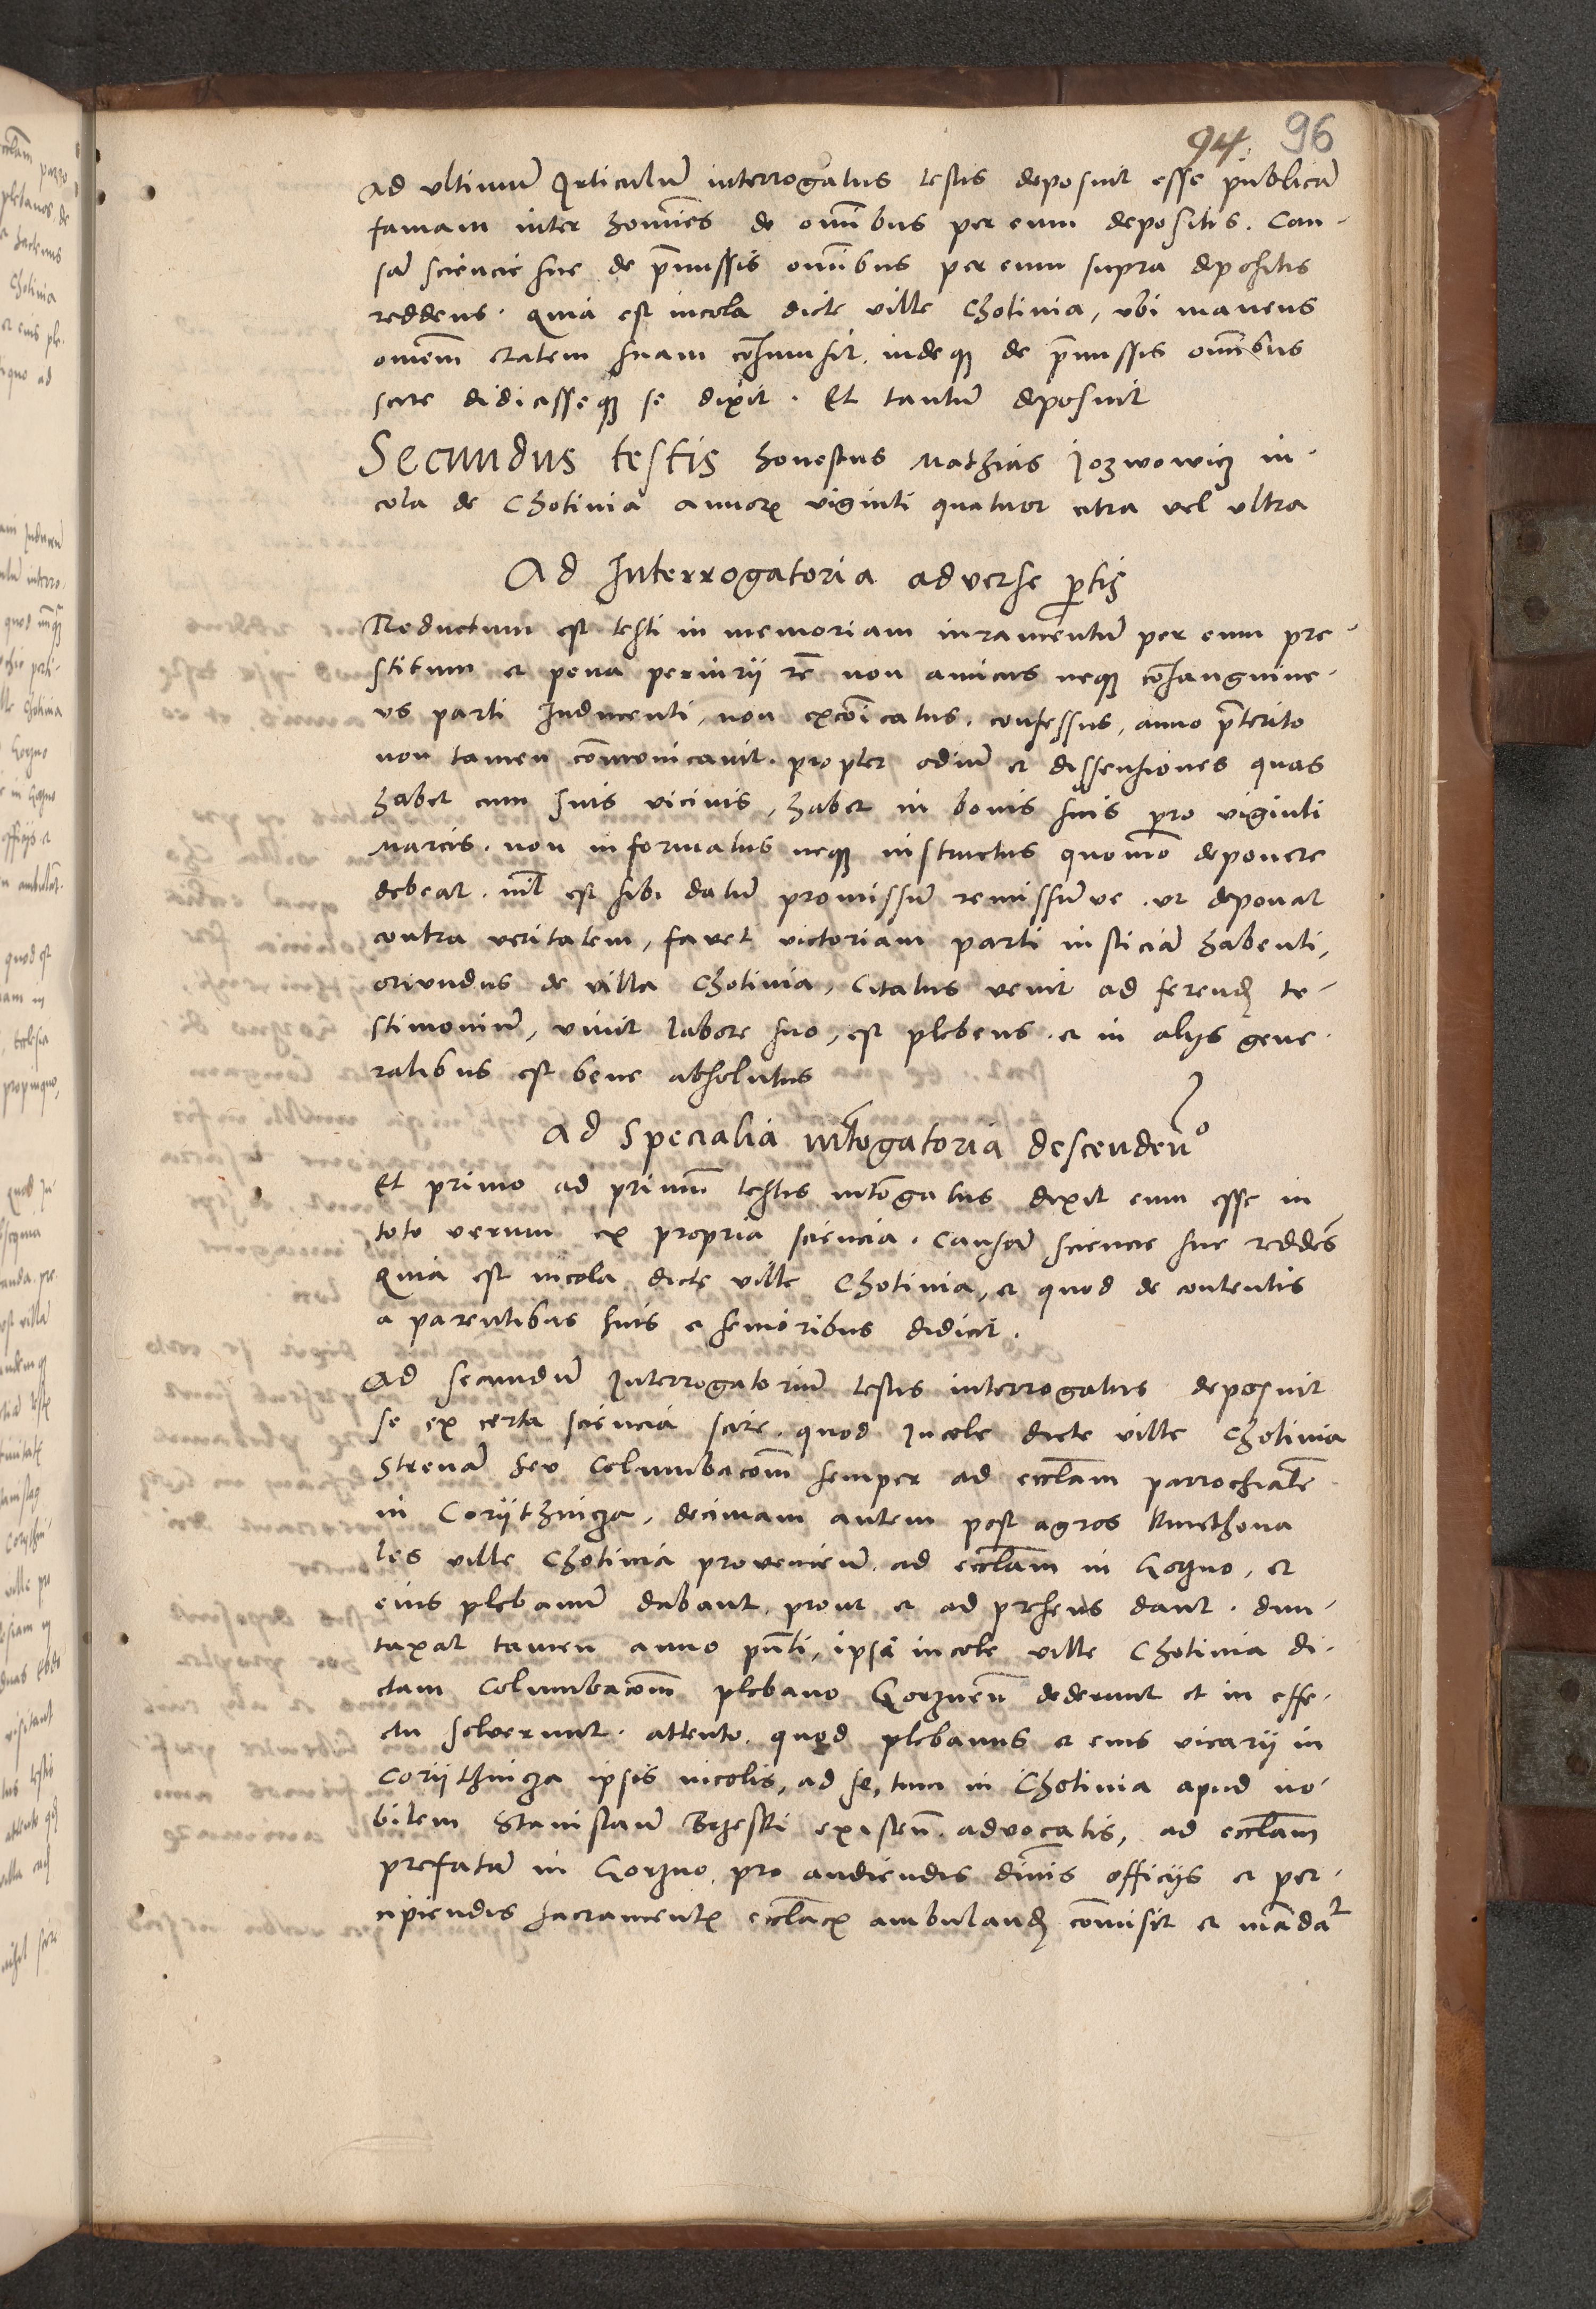 94. 96
Ad ultimum Articulum interrogatus testis deposuit esse publicam
famam inter homines de omnibus per eum depositis. Cau-
sam sciencie sue de premissis omnibus per eum supra depositis
reddens. Quia est incola dicte ville Chotinia, ubi manens
omnem etatem suam consumsit. indeqz de premissis omnibus
scire didicisseqz se dixit. Et tantum deposuit
Secundus testis honestus Mathias Jozwowicz in-
cola de Chotinia annorum viginti quatuor citra vel ultra
Ad Interrogatoria adverse partis
Reductum est testi in memoriam iuramentum per eum pre-
stitum et pena periurii non amicus neqz consanguine-
us parti Inducenti, non excommunicatus. confessus, anno preterito
non tamen communicavit. propter odium et dissensiones quas
habet cum suis vicinis, habet in bonis suis pro viginti
Marcis. non informatus neqz instructus quomodo deponere
debeat. nihil est sibi datum promissum remissumve. ut deponat
contra veritatem, favet victoriam parti iusticiam habenti,
oriundus de villa Chotinia, Citatus venit ad ferendum te-
stimonium, vivit labore suo, est plebeus. et in aliis gene-
ralibus est bene absolutus
Ad Specialia interrogatoria descendendo
Et primo ad primum testis interrogatus dixit eum esse in
toto verum ex propria sciencia. Causam sciencie sue reddens
Quia est incola dicte ville Chotinia, et quod de contentis
a parentibus suis et senioribus didicit.
Ad secundum Interrogatorium testis interrogatus deposuit
se ex certa sciencia scire. quod Incole dicte ville Chotinia
Strenam seu Columbacionem semper ad ecclesiam parrochialem
in Coriithnicza, decimam autem post agros Kmethona
les ville Chotinia provenientem. ad ecclesiam in Gorzno, et
eius plebanum dabant. prout et ad presens dant. dun-
taxat tamen anno presenti, ipsi incole ville Chotinia di-
ctam Columbacionem plebano Gorznensi dederunt et in effe-
ctu solverunt. attento. quod plebanus et eius vicarii in
Coriithnicza ipsis incolis, ad se, tunc in Chotinia apud no-
bilem Stanislaum Brzeski existen. advocatis, ad ecclesiam
prefatam in Gorzno. pro audiendis divinis officiis et per-
cipiendis sacramentis ecclesiasticis ambulandum commisit et mandavit